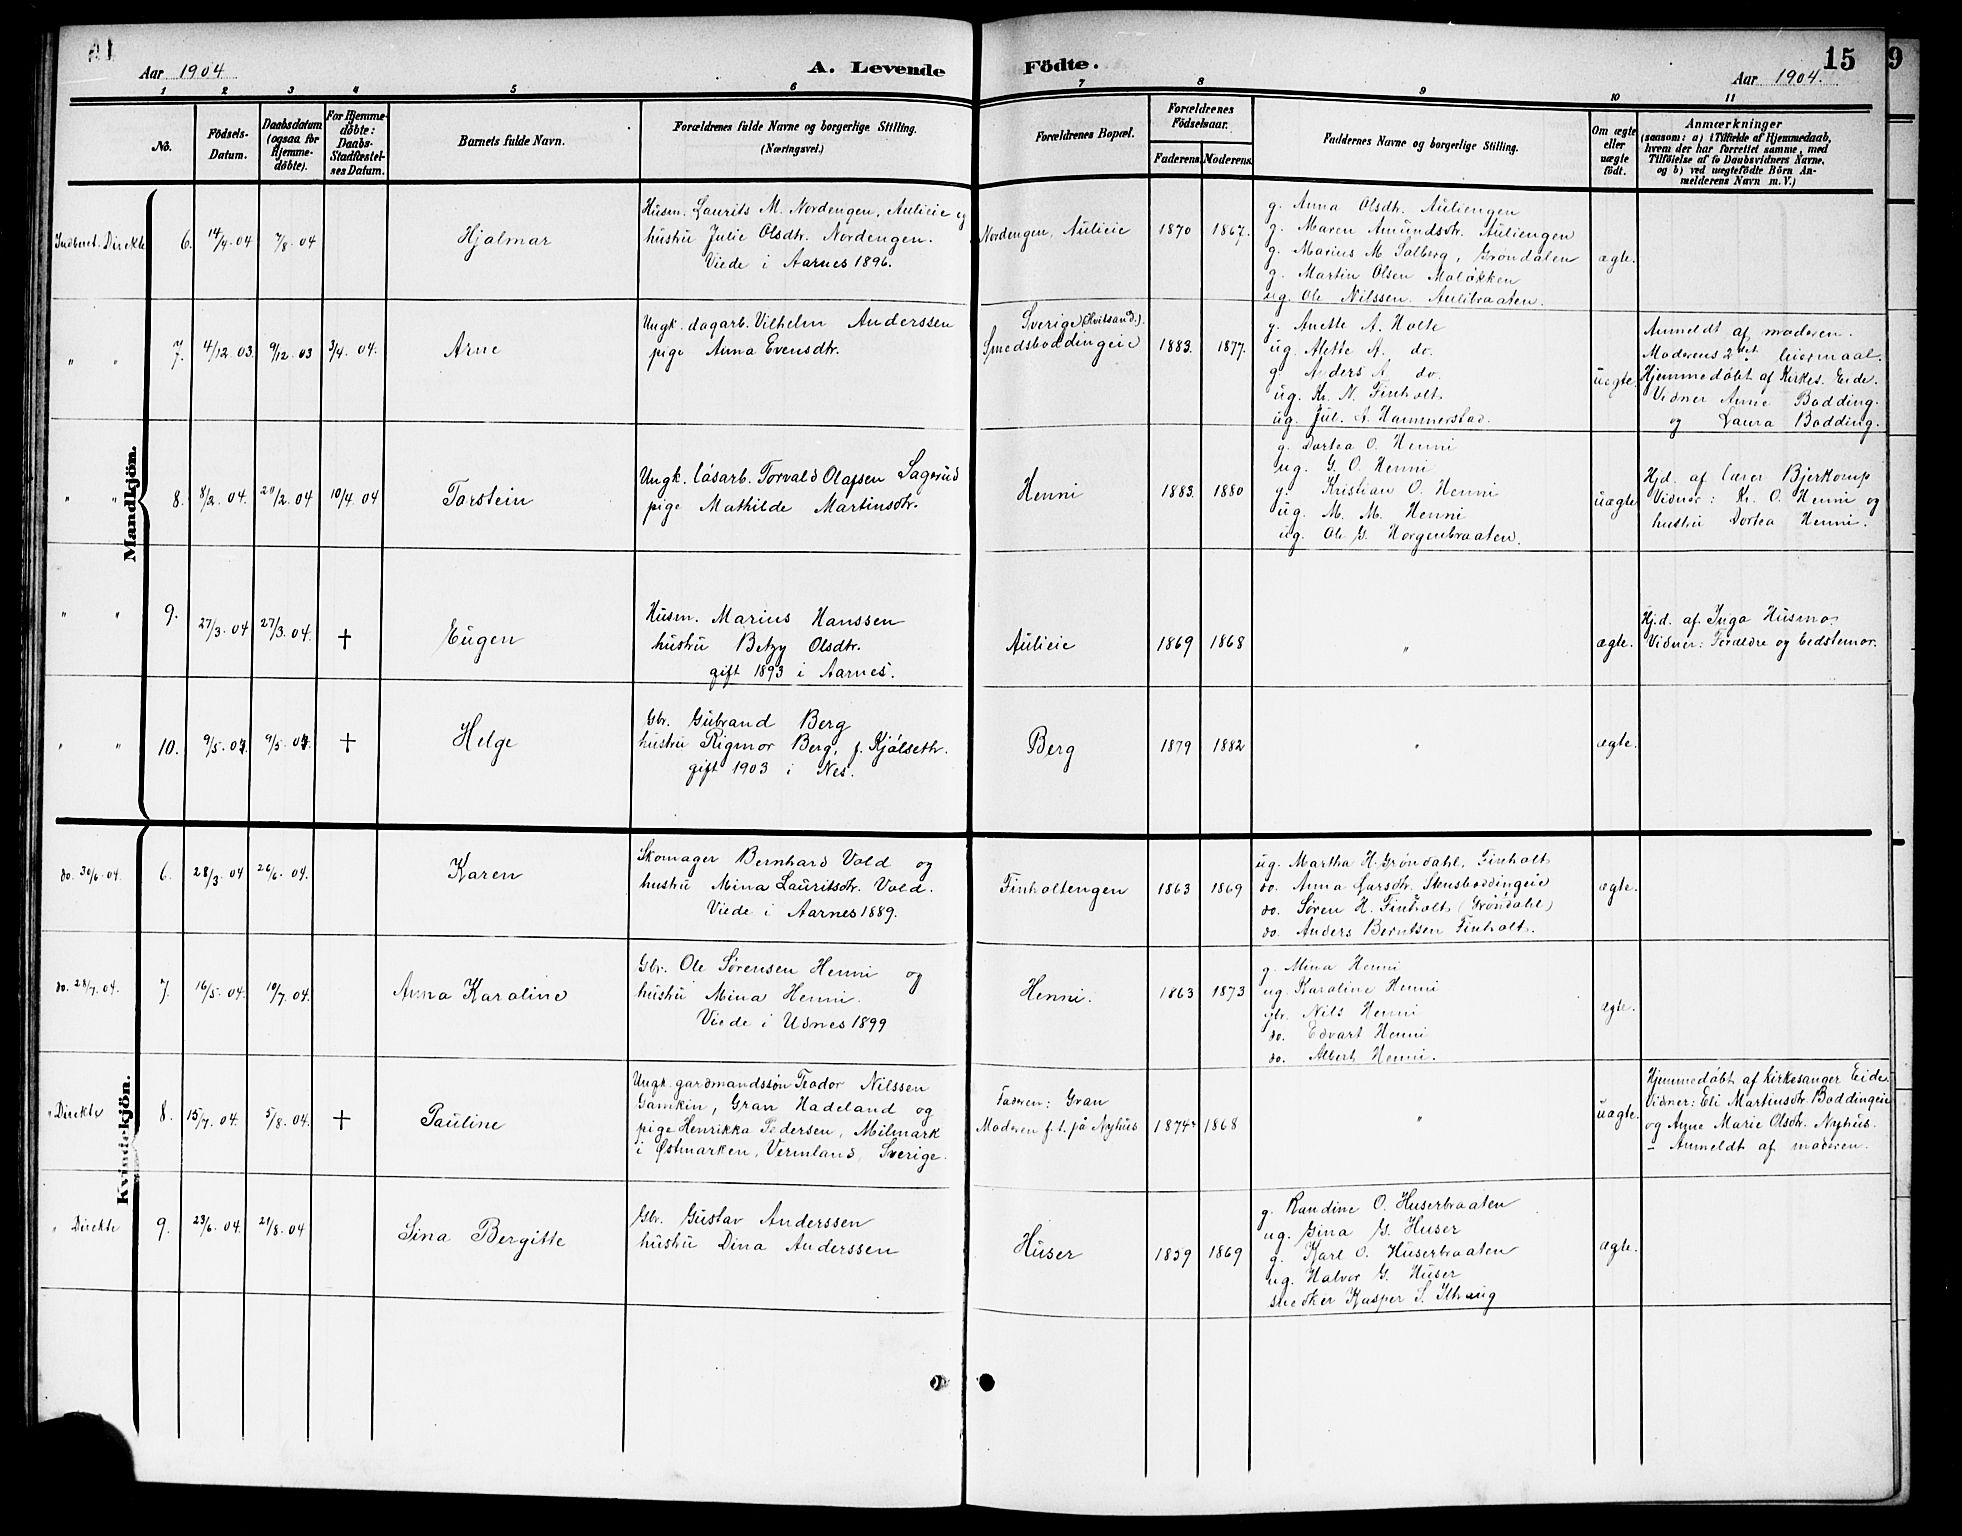 Aar 1904
A. Levende Födte.
15
Aar 1904.
9
1 2 3 4 5 6 7 8 9 10 11
No.
Födsels-
Datum.
Daabsdatum
(ogsaa for
Hjemme-
döbte).
For Hjemme-
döbte:
Daabs-
Stadfæstel-
ses Datum.
Barnets fulde Navn.
Forældrenes fulde Navne og borgerlige Stilling.
(Næringsvei.)
Forældrenes Bopæl.
Forældrenes
Födselsaar.
Faderens. Moderens.
Faddernes Navne og borgerlige Stilling.
Om ægte
eller
uægte
födt.
Anmærkninger
(saasom: a) i Tilfælde af Hjemmedaab,
hvem der har forrettet samme, med
Tilföielse af to Daabsvidners Navne,
og b) ved uægtefödte Börn An-
melderens Navn m. V.)
Mandkjön.
Indbnet. Direkte
6.
14/4. 04
7/8. 04
Hjalmar
Husm. Laurits M. Nordengen, Aulieie og
hustru Julie Olsdtr. Nordengen.
Viede i Aarnes 1896.
Nordengen, Aulieie
1870
1867.
g. Anna Olsdtr. Auliengen
g. Maren Amundsdtr. Auliengen
g. Marius M. Solberg, Grøndalen
g. Martin Olsen Maløkken
ug. Ole Nilssen Aulibraaten.
ægte.
" "
7.
4/12. 03.
9/12. 03
3/4. 04.
Arne
Ungk. dagarb. Vilhelm Anderssen
pige Anna Evensdtr.
Sverige (Hvitsand.)
Smedsboddingeie
1883.
1877.
g. Anette A. Holte
ug. Alette A. do.
g. Anders A. do.
ug. Kr. N. Finholt.
ug. Jul. A. Hammerstad.
uægte.
Anmeldt af moderen.
Moderens 2det leiermaal.
Hjemmedøbt af Kirkes. Eide.
Vidner Anne Bodding.
og Laura Bodding.
" "
8.
8/2. 04.
21/2. 04
10/4. 04
Torstein
Ungk. løsarb. Torvald Olafsen Sagerud
pige Mathilde Martinsdtr.
Henni
1883.
1880
g. Dortea O. Henni
ug. G. O. Henni
g. Kristian O. Henni
ug. M. M. Henni
ug. Ole G. Horgenbraaten.
uægte
Hjd. af lærer Bjerkomp
Vidner: Kr. O. Henni og
hustru Dortea Henni.
" "
9.
27/3. 04
27/3. 04.
†
Eugen
Husm. Marius Hanssen
hustru Betzy Olsdtr.
gift 1893 i Aarnes.
Aulieie
1869
1868
"
ægte.
Hj.d. af Inga Husmo.
Vidner: Forældre og bedstemor.
" "
10.
9/5. 04.
9/5. 04.
†
Helge
Gbr. Gubrand Berg
hustru Rigmor Berg, f. Kjølseth.
gift 1903 i Nes.
Berg
1879
1882
"
ægte.
Kvindekjön.
do. 30/6. 04.
6.
28/3. 04
26/6. 04.
Karen
Skomager Bernhard Vold og
hustru Mina Lauritsdtr. Vold.
Viede i Aarnes 1889.
Finholtengen
1863
1869
ug. Martha H. Grøndahl, Finholt
do. Anna Larsdtr. Skusboddingeie
do. Søren H. Finholt (Grøndahl)
do. Anders Berntsen Finholt.
ægte.
do. 28/7. 04.
7.
16/5. 04.
10/7. 04.
Anna Karoline
Gbr. Ole Sørensen Henni og
hustru Mina Henni.
Viede i Udnes 1899
Henni.
1863
1873
g. Mina Henni
ug. Karoline Henni
gbr. Nils Henni
do. Edvart Henni
do. Albert Henni.
ægte.
" Direkte
8.
15/7. 04.
5/8. 04.
†
Pauline
Ungk. gardmandssøn Teodor Nilssen
Gamkin, Gran Hadeland og
pige Henrikka Pedersen, Milmark
i Østmarken, Vermland, Sverige.
Faderen: Gran
Moderen f. t. på Nyhus
1874
1868
"
uægte.
Hjemmedøbt af Kirkesanger Eide
Vidner: Eli Martinsdtr. Boddingeie
og Anne Marie Olsdtr. Nyhus.
– Anmeldt af moderen.
" Direkte
9.
23/6. 04.
21/8. 04
Sina Bergitte
Gbr. Gustav Anderssen
hustru Dina Anderssen
Huser
1859
1869
g. Randine O. Huserbraaten
ug. Gina G. Huser
g. Karl O. Huserbraaten
ug. Halvor G. Huser
snedker Kasper S. Ilhaug
ægte.